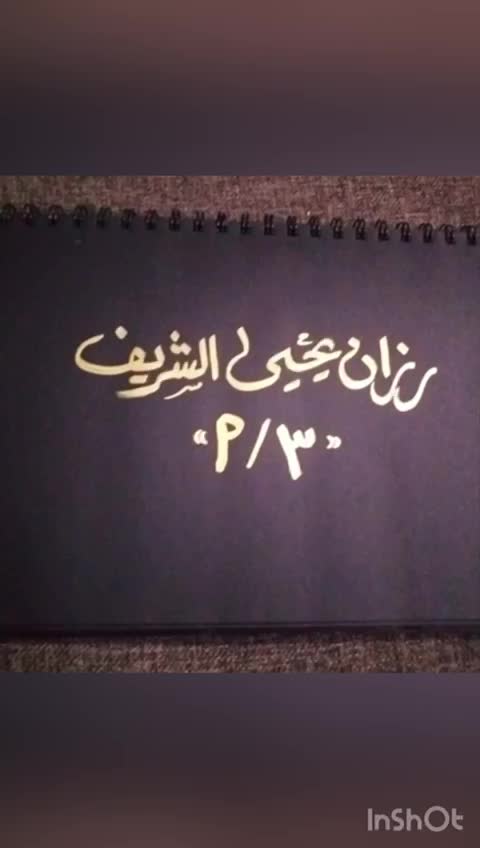 رزان يحيى الشريف
«٣/م»
InShOt